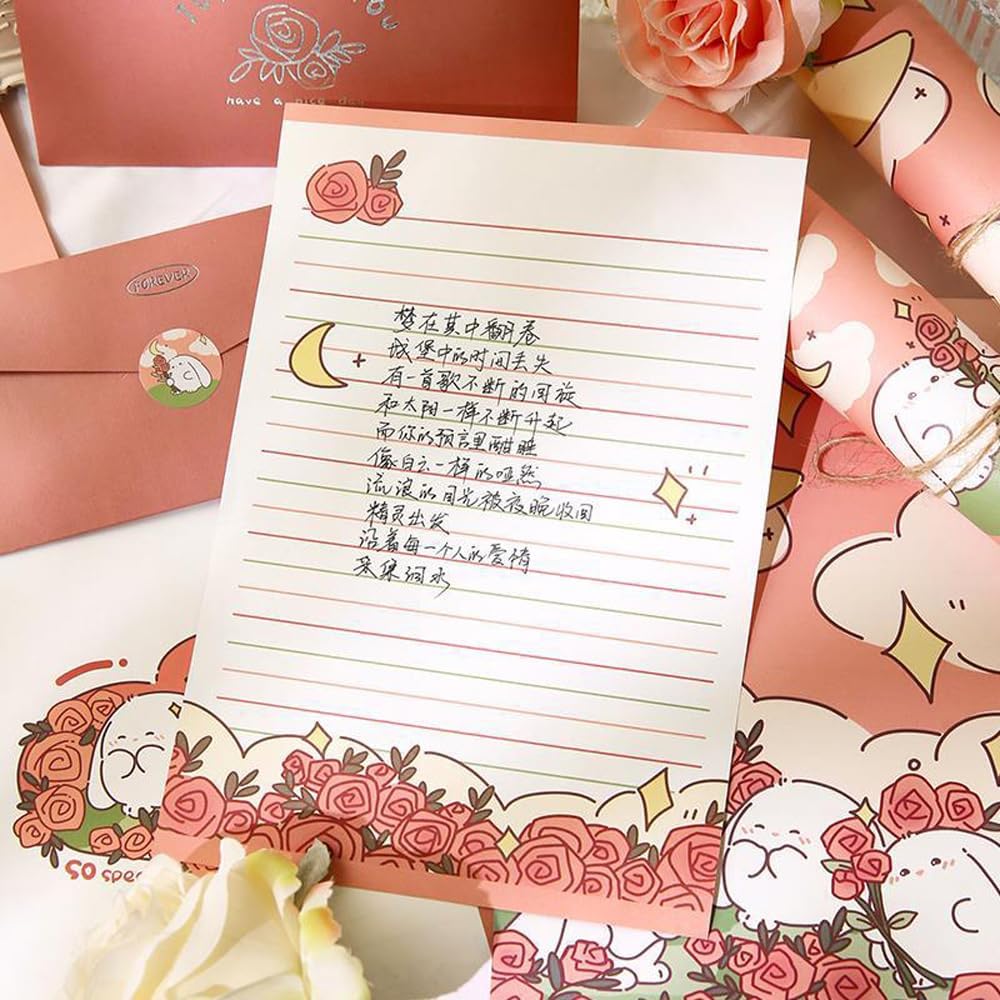 FOR YOU
have a nice day
FOREVER
梦在其中翻卷
城堡中的时间丢失
有一首歌不断的回旋
和太阳一样不断升起
而你的预言里酣睡
像白云一样的哑然
流浪的目光被夜晚收回
精灵出发
沿着每一个人的爱情
采集润水
SO spec